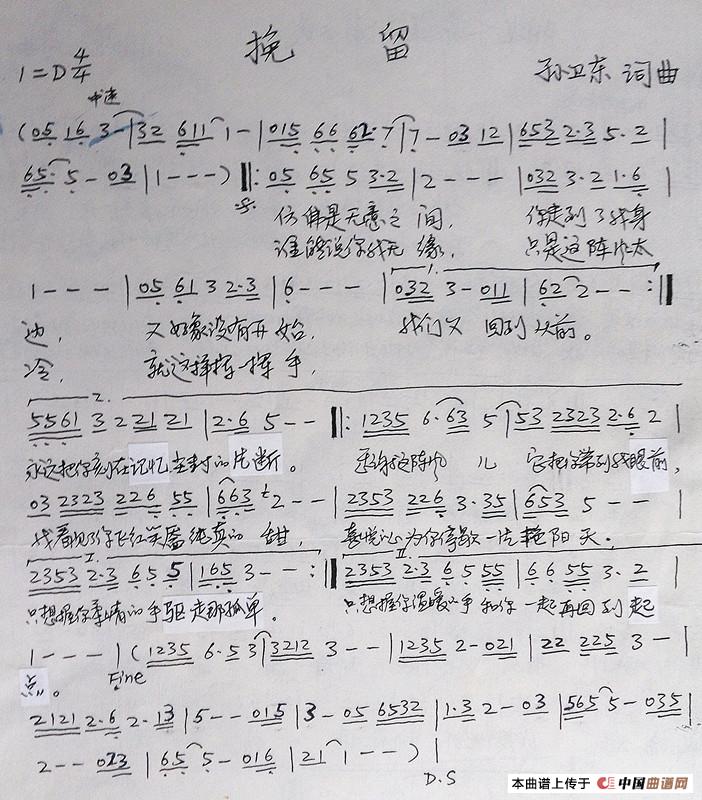 挽 留
1=D 4/4
孙卫东 词曲
中速
(05 16 3-|32 611 1-|015 66 62·7|7-03 12|653 2·3 5·2|
65·5-03|1---)‖:05 65 5 3·2|2---|032 3·2 1·6|
仿佛是无意之间, 你走到了我身
谁能说你我无缘, 只是这阵风太
1---|05 61 3 2·3|6---|032 3-011|62 2--:‖
边, 又好象没有开始, 我们又回到以前。
冷, 就这样挥一挥手,
2.
5561 3 2 21 21|2·6 5--‖:1235 6·63 5|53 2323 2·6 2|
永远把你刻在记忆尘封的片断。 也许这阵风儿 它把你带到我眼前,
03 2323 226 55|663 2--|2353 226 3·35|653 5--|
我看见了你飞红笑靥纯真的甜, 喜悦心为你停歇一片艳阳天。
I. II.
2353 2·3 65 5|165 3--:‖2353 2·3 65 55|66 55 3·2|
只想握你季情的手驱走那孤单。 只想握你温暖的手和你一起再回到起
1---|(1235 6·5 3|3212 3--|1235 2-021|22 225 3-|
点。 Fine
2121 2·6 2·13|5--015|3-05 6532|1·3 2-03|565 5-035|
2--023|65 5-016|21 1--)|
D.S
本曲谱上传于 中国曲谱网